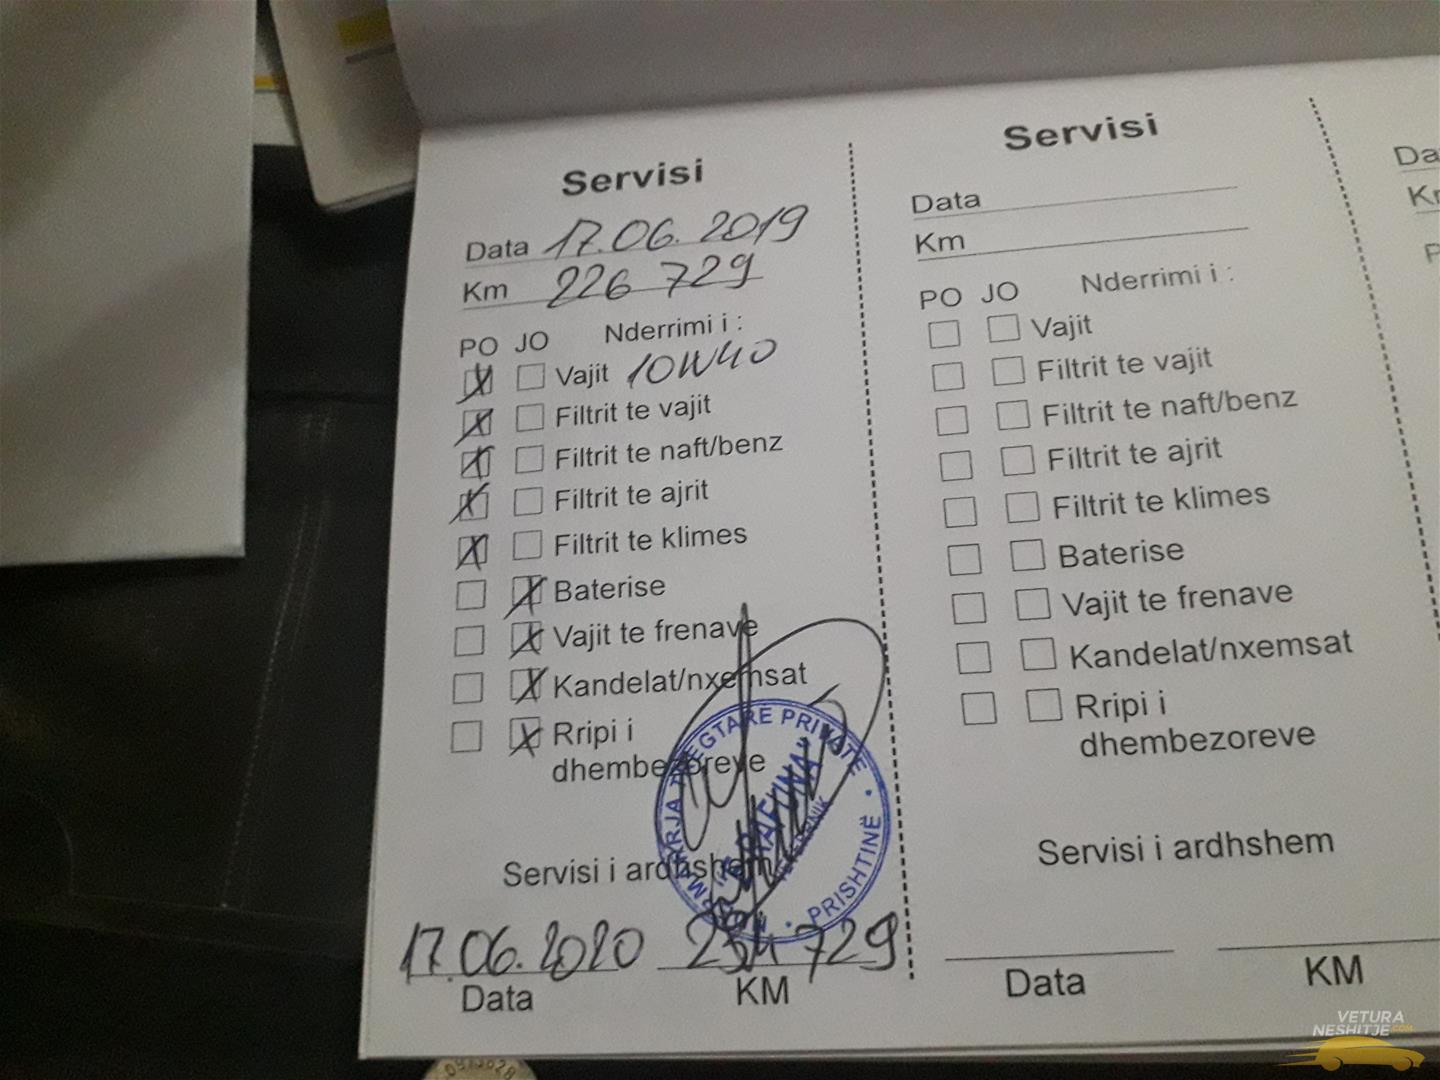 Servisi
Data 17.06.2019
Km 226 729
PO JO Nderrimi i :
Vajit 10W40
Filtrit te vajit
Filtrit te naft/benz
Filtrit te ajrit
Filtrit te klimes
Baterise
Vajit te frenave
Kandelat/nxemsat
Rripi i
dhembezoreve
Servisi i ardhshem
17.06.2020 234 729
Data KM
PRIVATE
PRISHTINË
Servisi
Data
Km
PO JO Nderrimi i :
Vajit
Filtrit te vajit
Filtrit te naft/benz
Filtrit te ajrit
Filtrit te klimes
Baterise
Vajit te frenave
Kandelat/nxemsat
Rripi i
dhembezoreve
Servisi i ardhshem
Data KM
VETURA
NESHITJE.COM